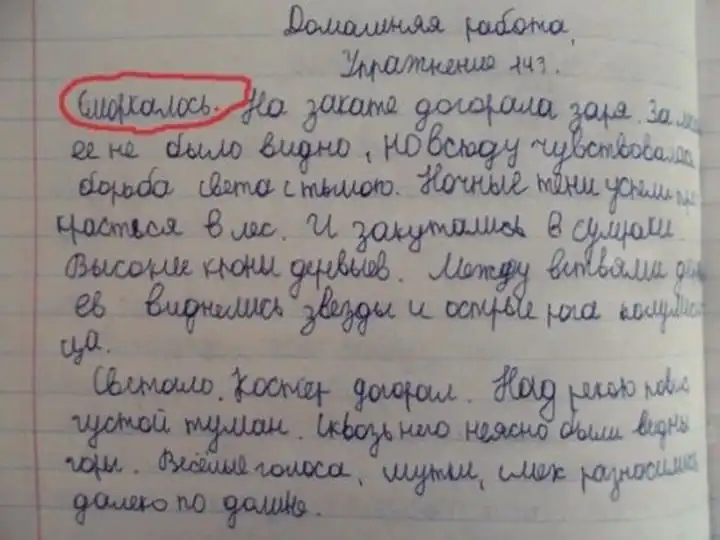 Домашняя работа.
Упражнение 143.
Сморкалось. На закате догорала заря. За
ее не было видно, но всюду чувствовалась
борьба света с тьмою. Ночные тени успели
красться в лес. И закутались в сумраки.
Высокие крони деревьев. Между ветвями
ев виднелись звезды и острые рога полумеся
ца.
Светало. Костёр догорал. Над рекою повис
густой туман. Сквозь него неясно были видны
горы. Весёлые голоса, шутки, смех разносились
далеко по долине.